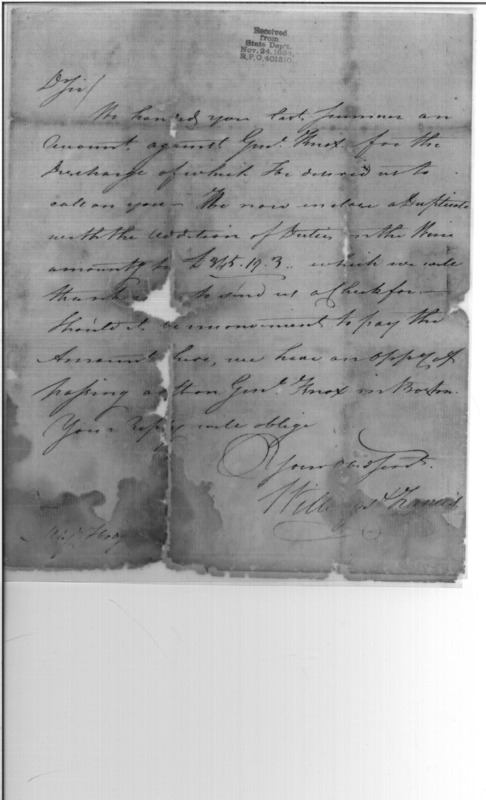 Received
from
State Dept.
Nov. 24, 1894,
R.P.O. 401310.
Dr Sir/
We handed you last Summer an
Account against Genl. Knox for the
Discharge of which He desired us to
call on you – We now inclose a Duplicate
with the addition of Duties on the
amountg to £345.19.3.. which we will
thank to send us a Check for –
Should it be inconvenient to pay the
Amount here, we have an oppy of
passing a on Genl. Knox in Boston.
Your reply will oblige
Your Obd Servts.
Willi and Francis